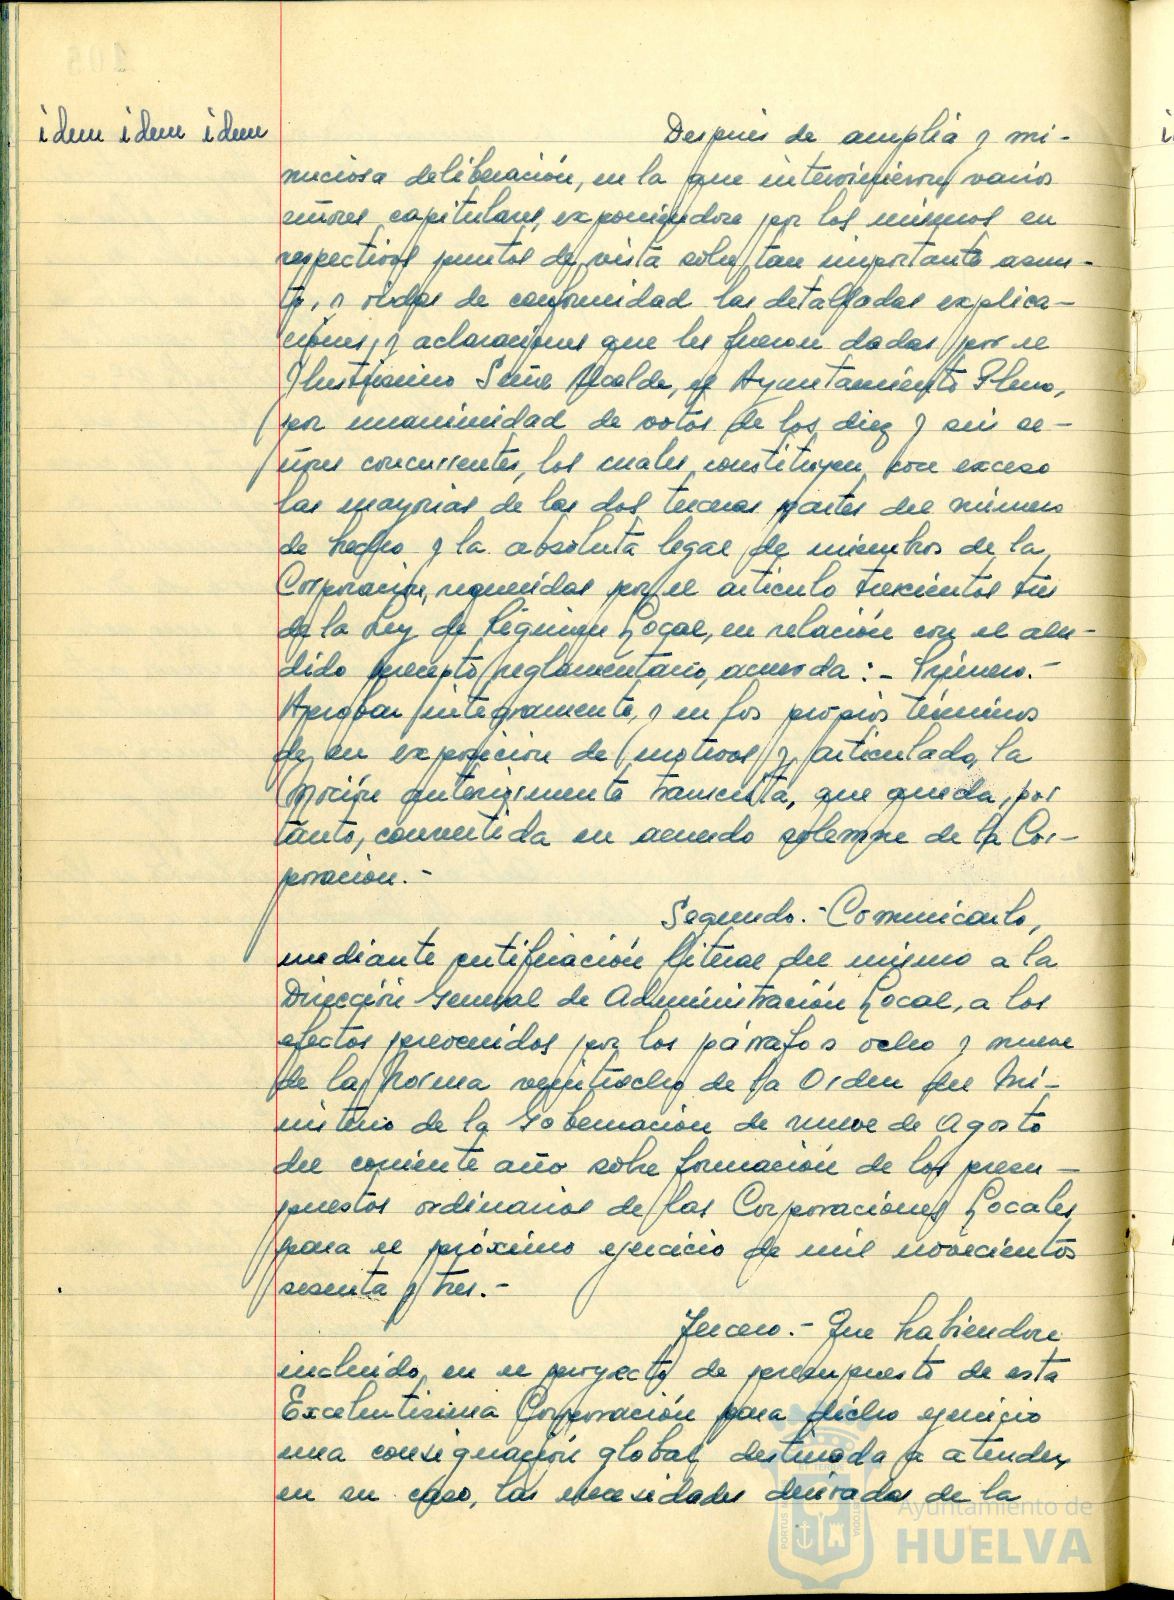 idem idem idem
Después de amplia y mi-
nuciosa deliberación, en la que intervinieron varios
señores capitulares, exponiendose por los mismos su
respectivos puntos de vista sobre tan importante asun-
to, y oidas de conformidad las detalladas explica-
ciones y aclaraciones que les fueron dadas por el
Ilustrisimo Señor Alcalde, el Ayuntamiento Pleno,
por unanimidad de votos de los diez y seis se-
ñores concurrentes, los cuales constituyen con exceso
las mayorias de las dos terceras partes del número
de hecho y la absoluta legal de miembros de la
Corporación, requeridas por el articulo trescientos tres
de la Ley de Régimen Local, en relación con el alu-
dido precepto reglamentario, acuerda:- Primero.-
Aprobar integramente, y en los propios términos
de su exposición de motivos y articulado, la
Moción anteriormente transcrita, que queda, por
tanto, convertida en acuerdo solemne de la Cor-
poración.-
Segundo.- Comunicarlo,
mediante certificación literal del mismo a la
Dirección General de Administración Local, a los
efectos prevenidos por los párrafos ocho y nueve
de la Norma veintiocho de la Orden del Mi-
nisterio de la Gobernación de nueve de Agosto
del corriente año sobre formación de los presu-
puestos ordinarios de las Corporaciones Locales
para el próximo ejercicio de mil novecientos
sesenta y tres.-
Tercero.- Que habiendose
incluido en el proyecto de presupuesto de esta
Excelentisima Corporación para dicho ejercicio
una consignación global destinada a atender,
en su caso, las necesidades derivadas de la
Ayuntamiento de
HUELVA